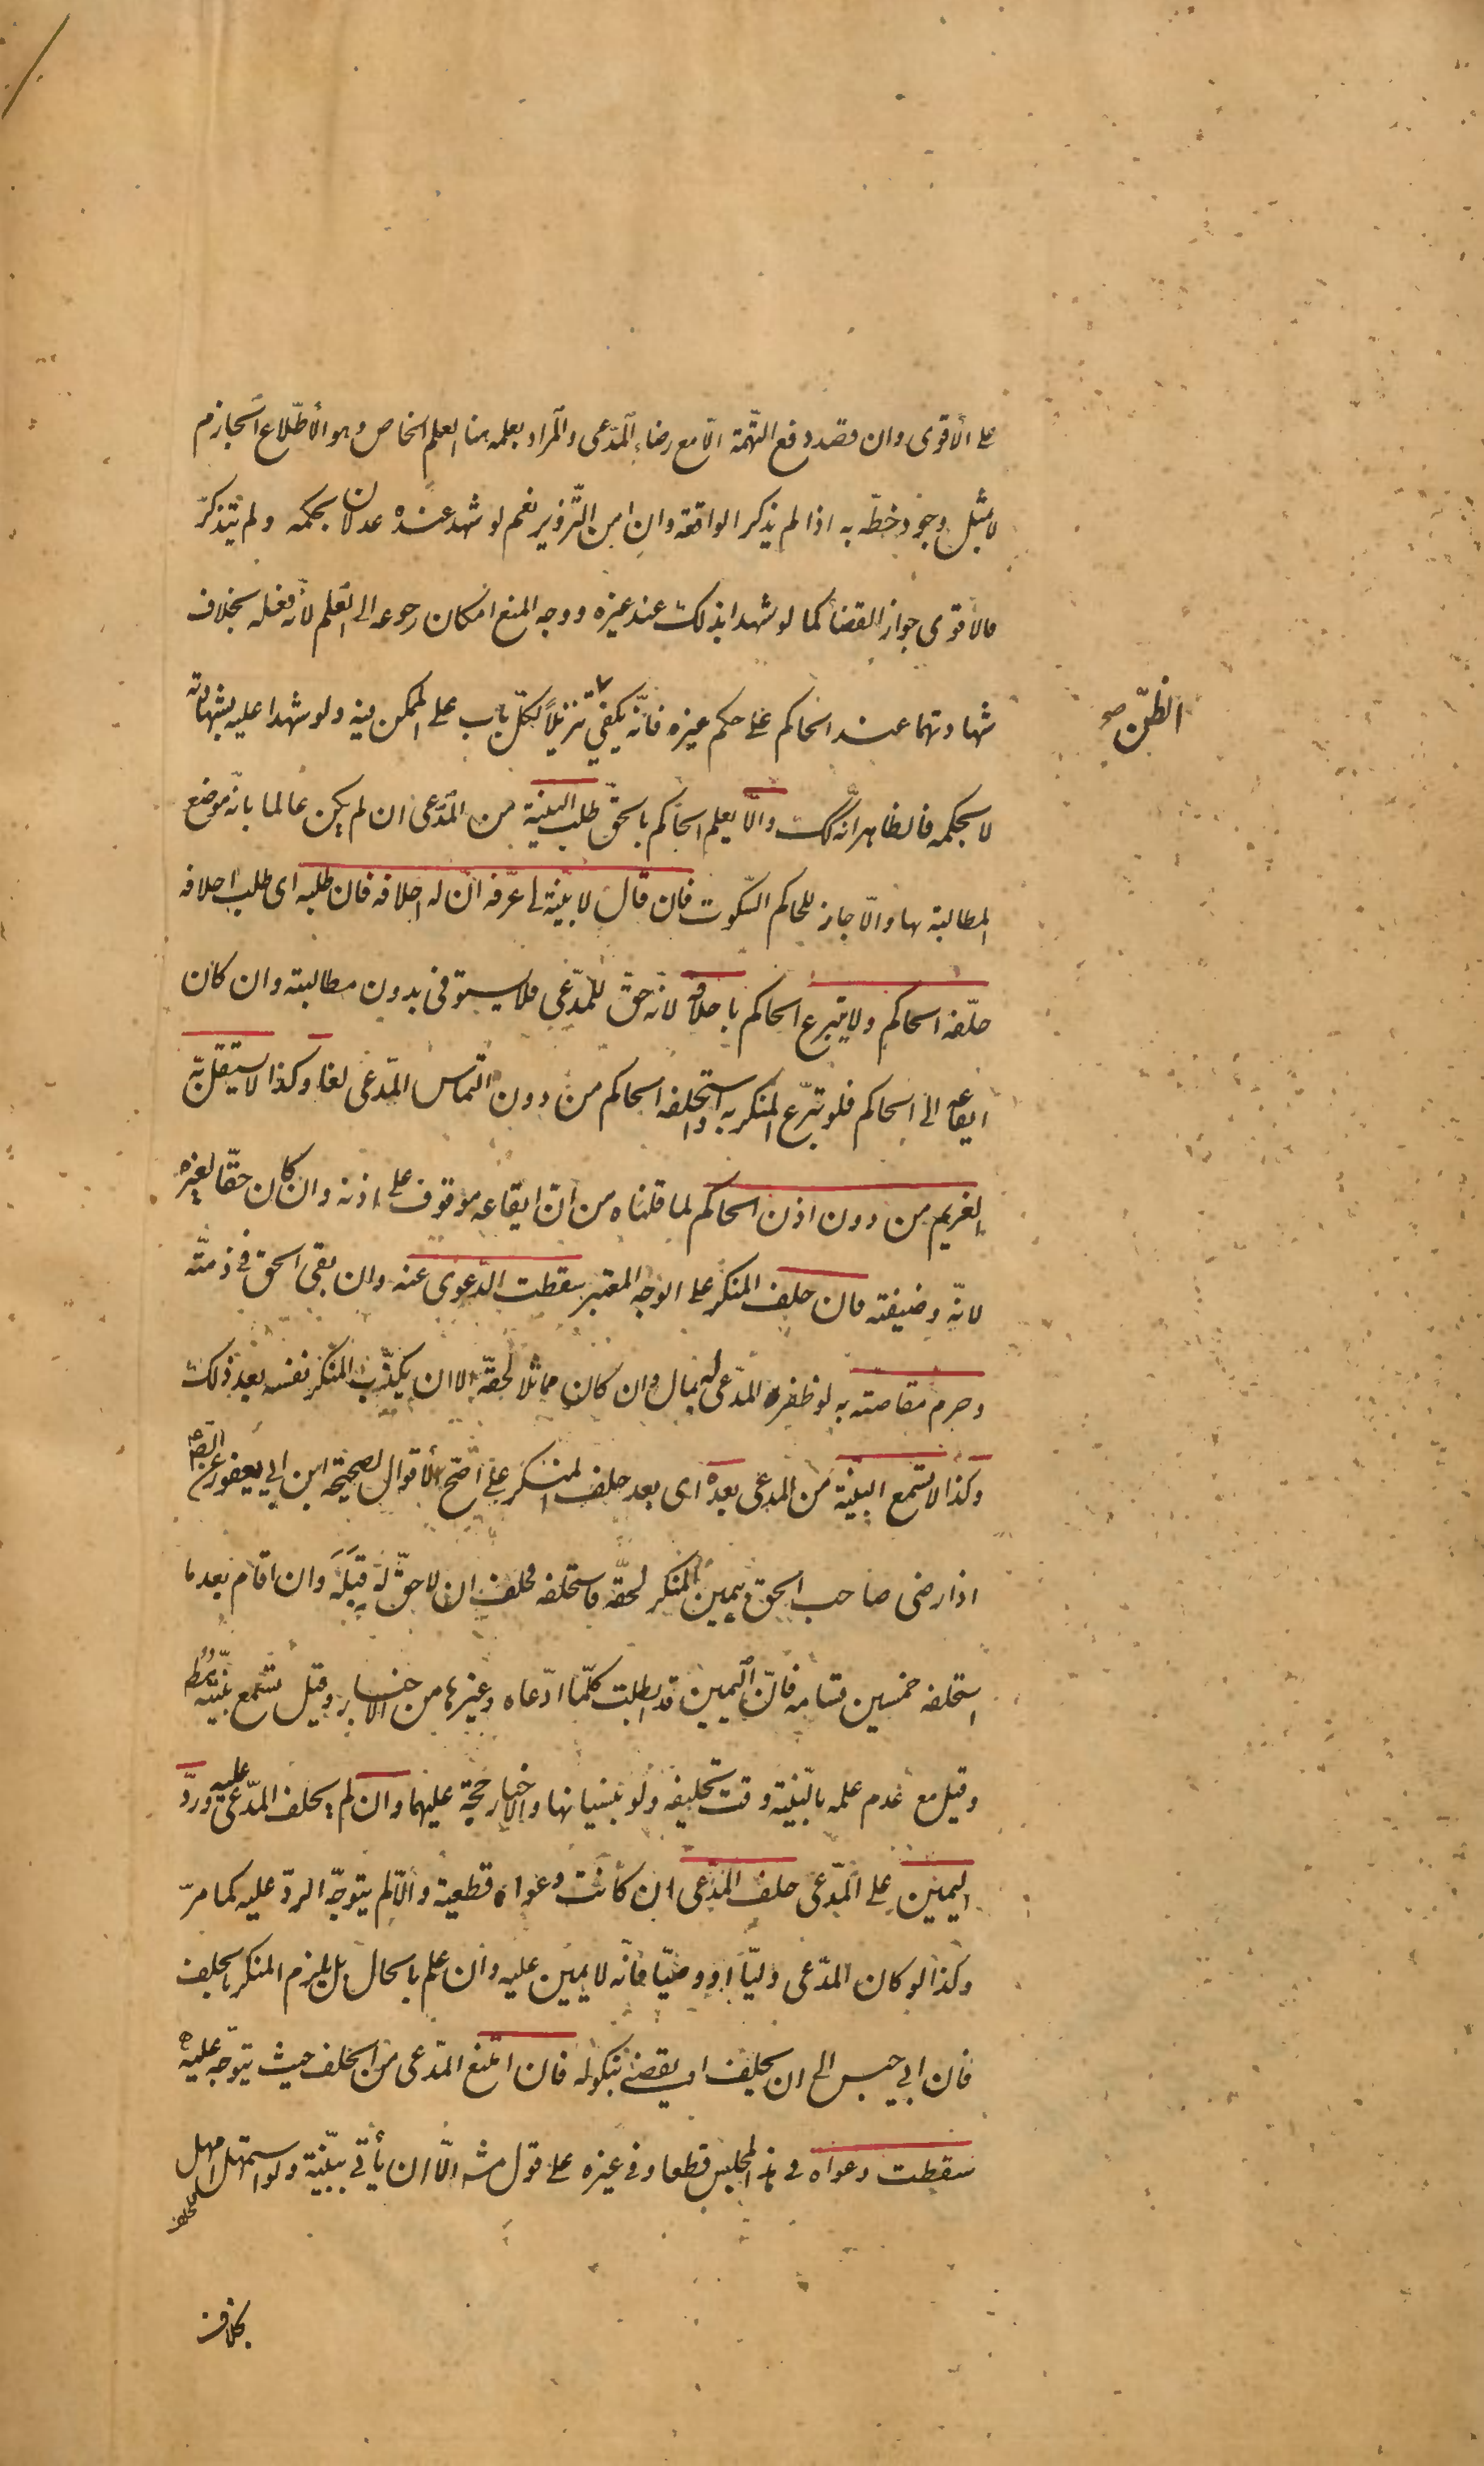 على الأقوى وان قصد دفع التّهمة الّا مع رضاء المدّعى والمراد بعلمه هنا العلم الخاص وهو الاطّلاع الجازم
لا بمثل وجود خطّه به اذا لم يذكر الواقعة وان امن التّزوير نعم لو شهد عنده عدلان بحكمه ولم يتذكر
فالاقوى جواز القضا كما لو شهدا بذلك عند غيره ووجه المنع امكان رجوعه الى العلم لانّه فعله بخلاف
شهادتهما عند الحاكم على حكم غيره فانّه يكفى تنزيلاً لكلّ باب على الممكن فيه ولو شهدا عليه بشهادته
الظنّ صح
لا بحكمه فالظاهر انّه كك والّا يعلم الحاكم بالحقّ طلب البيّنة من المدّعى ان لم يكن عالما بانّه موضع
المطالبة بها والّا جاز للحاكم السّكوت فان قال لا بيّنة لى عرّفه انّ له احلافه فان طلبه اى طلب احلافه
حلّفه الحاكم ولا يتبرع الحاكم باحلافه لانّه حقّ للمدّعى فلا يستوفى بدون مطالبته وان كان
ايقاعه الى الحاكم فلو تبرّع المنكر به او استحلفه الحاكم من دون التماس المدّعى لغا وكذا لا يستقلّ به
الغريم من دون اذن الحاكم لما قلناه من انّ ايقاعه موقوف على اذنه وان كان حقّا لغيره
لانّه وضيفته فان حلف المنكر على الوجه المعتبر سقطت الدّعوى عنه وان بقى الحق فى ذمّته
وحرم مقاصّته به لو ظفر المدّعى له بمال وان كان مماثلا لحقّه الا ان يكذّب المنكر نفسه بعد ذلك
وكذا لا تسمع البيّنة من المدعى بعده اى بعد حلف المنكر على اصّح الأقوال لصحيحة ابن ابى يعفور عن الص ع
اذا رضى صاحب الحق بيمين المنكر لحقّه فاستحلفه فحلف ان لا حقّ له قِبَلَه وان اقام بعد ما
استحلفه خمسين قسامه فانّ اليمين قد ابطلت كلّما ادّعاه وغيرها من الاخبار وقيل تسمع بيّنته مط
وقيل مع عدم علمه بالبيّنة وقت تحليفه ولو بنسيانها والاخبار حجة عليهما وان لم يحلف المدّعى عليه وردّ
اليمين على المدّعى حلف المدّعى ان كانت دعواه قطعية والّا لم يتوجّه الردّ عليه كما مرّ
وكذا لو كان المدّعى وليّا او وصيّا فانّه لا يمين عليه وان علم بالحال بل يلزم المنكر بالحلف
فان ابى حبس الى ان يحلف او يقضى بنكوله فان امتنع المدّعى من الحلف حيث يتوجّه عليه
سقطت دعواه فى هذا المجلس قطعا وفى غيره على قول مشه الّا ان يأتى ببيّنة ولو استمهل امهل
بخلاف